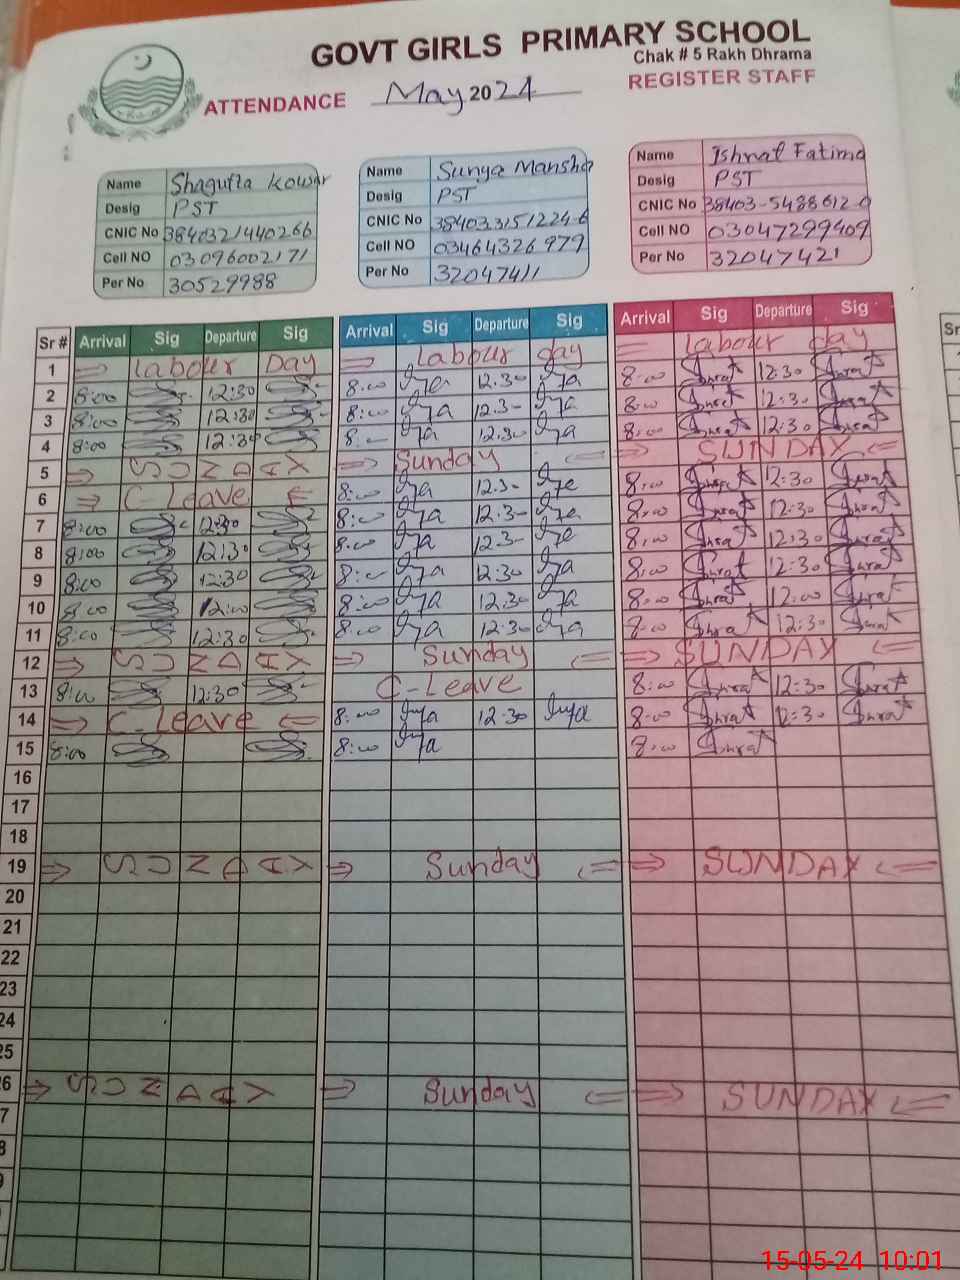 GOVT GIRLS PRIMARY SCHOOL
Chak # 5 Rakh Dhrama
ATTENDANCE May 2024 REGISTER STAFF
Name Shagufta Kowsar
Desig PST
CNIC No 3840321440266
Cell NO 03096002171
Per No 30529988
Name Sunya Mansha
Desig PST
CNIC No 3840331512246
Cell NO 03464326979
Per No 32047411
Name Ishrat Fatima
Desig PST
CNIC No 38403-5488612-0
Cell NO 03047299409
Per No 32047421
Sr # Arrival Sig Departure Sig Arrival Sig Departure Sig Arrival Sig Departure Sig
1 Labour Day Labour day Labour day
2 8:00 12:30 8:00 12:30 8:00 Ishrat 12:30 Ishrat
3 8:00 12:30 8:00 12:30 8:00 Ishrat 12:30 Ishrat
4 8:00 12:30 8:00 12:30 8:00 Ishrat 12:30 Ishrat
5 SUNDAY Sunday SUNDAY
6 C-Leave 8:00 12:30 8:00 Ishrat 12:30 Ishrat
7 8:00 12:30 8:00 12:30 8:00 Ishrat 12:30 Ishrat
8 8:00 12:30 8:00 12:30 8:00 Ishrat 12:30 Ishrat
9 8:00 12:30 8:00 12:30 8:00 Ishrat 12:30 Ishrat
10 8:00 12:00 8:00 12:30 8:00 Ishrat 12:00 Ishrat
11 8:00 12:30 8:00 12:30 8:00 Ishrat 12:30 Ishrat
12 SUNDAY Sunday SUNDAY
13 8:00 12:30 C-Leave 8:00 Ishrat 12:30 Ishrat
14 C-Leave 8:00 12:30 8:00 Ishrat 12:30 Ishrat
15 8:00 8:00 8:00 Ishrat
16
17
18
19 SUNDAY Sunday SUNDAY
20
21
22
23
24
25
26 SUNDAY Sunday SUNDAY
7
8
9
15-05-24 10:01